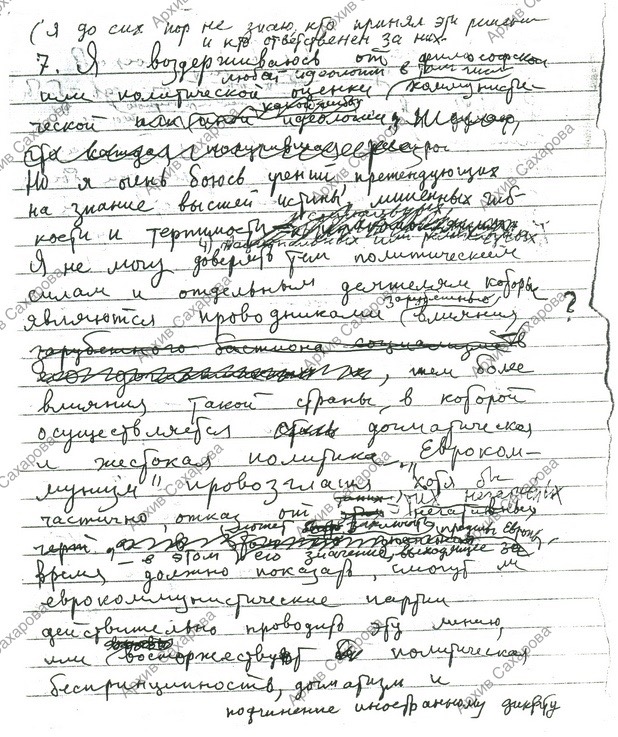 (Я до сих пор не знаю, кто принял эти решения
и кто ответственен за них.
7. Я воздерживаюсь от философской
или политической оценки
любой идеологии в том числе
коммунисти-
ческой или какой-нибудь
иной идеологии
Но я очень боюсь претендующих
на знание высшей истины, лишенных гиб-
кости и терпимости
национальных или религиозных
Я не могу доверять тем политическим
силам и отдельным деятелям которые
являются проводниками зарубежного влияния ?
зарубежного бастиона социализма
, тем более
влияния такой страны, в которой
осуществляется догматическая
и жестокая политика. "Евроком-
мунизм" провозгласил хотя бы
частично, отказ от этих негативных
черт
- в этом его значение, выходящее за
пределы Европы.
время должно показать, смогут ли
еврокоммунистические партии
действительно проводить эту линию,
или восторжествуют политическая
беспринципность, догматизм и
подчинение иностранному диктату
Архив Сахарова